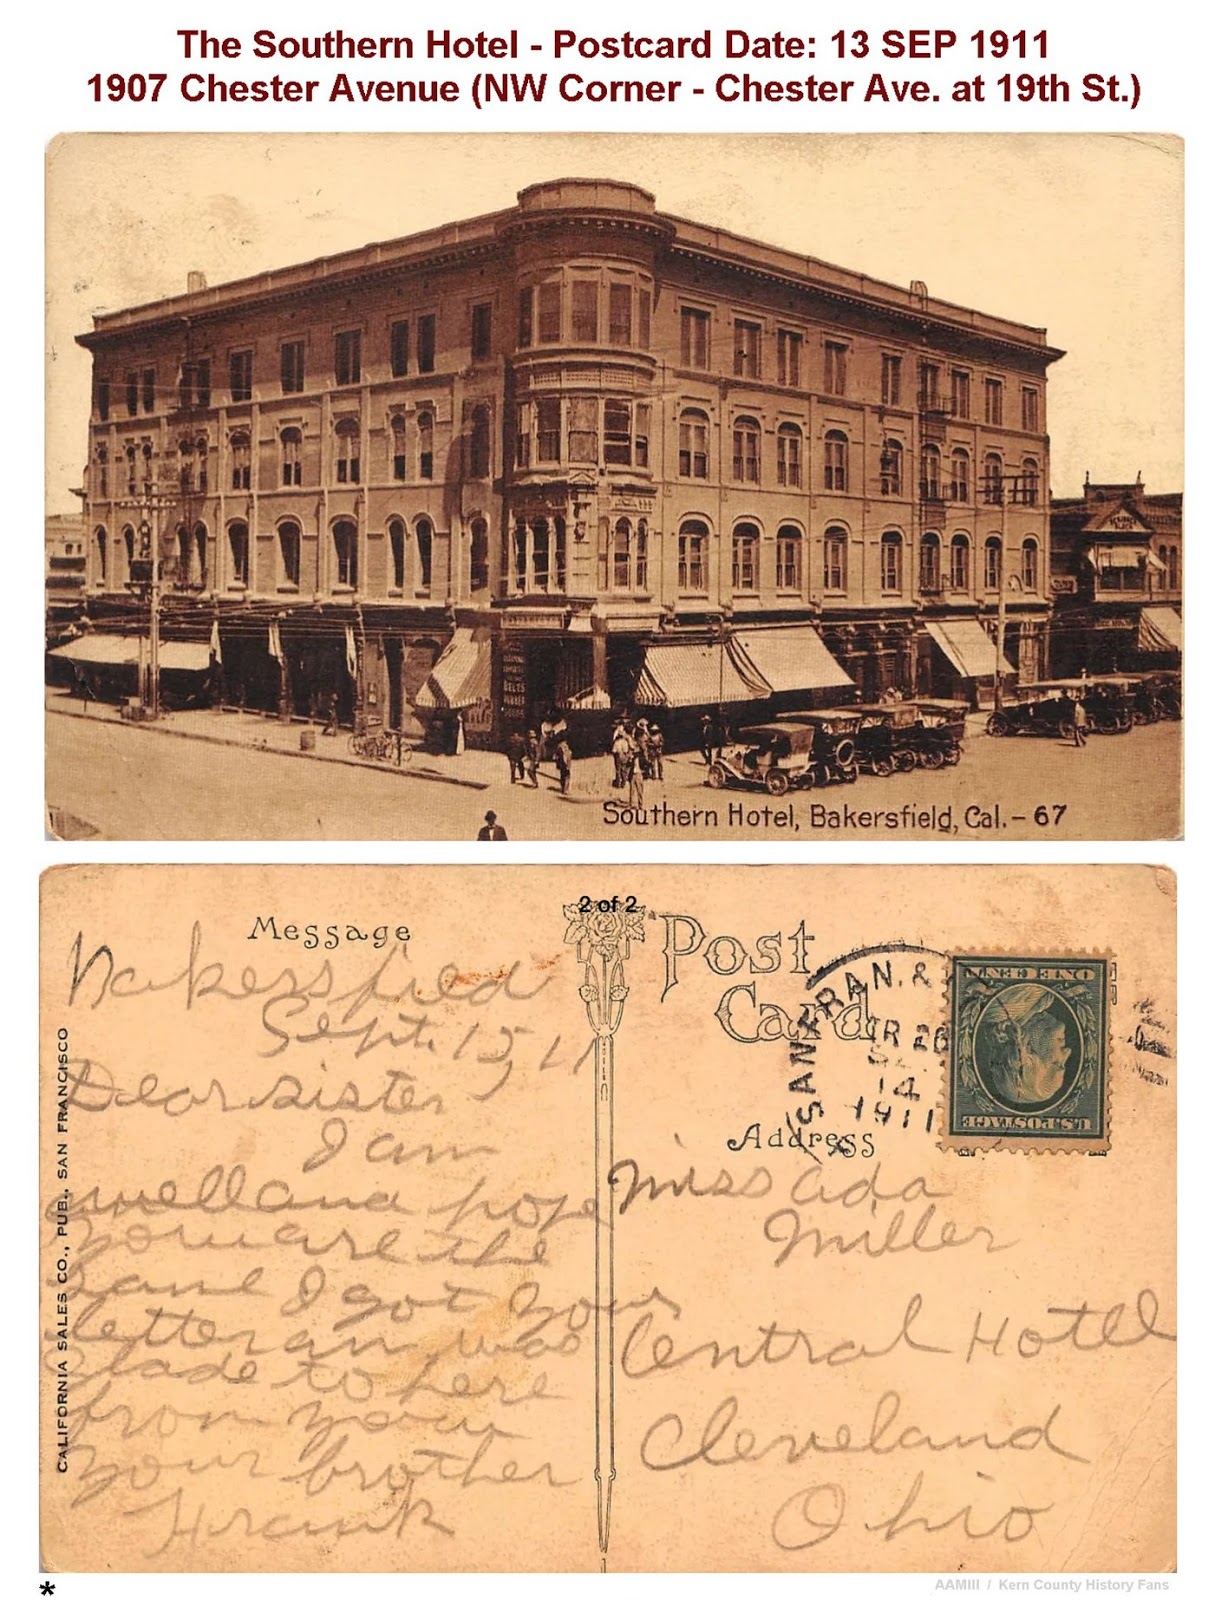 The Southern Hotel - Postcard Date: 13 SEP 1911
1907 Chester Avenue (NW Corner - Chester Ave. at 19th St.)
BELTS
Southern Hotel, Bakersfield, Cal. - 67
2 of 2
Message
Post
Card
Address
CALIFORNIA SALES CO., PUB., SAN FRANCISCO
SAN FRAN. &
14
1911
ONE CENT
U.S. POSTAGE
Bakersfield
Sept. 15, 11
Dear sister
I am
well and hope
you are the
same I got your
letter an was
glade to here
from you
your brother
Frank
Miss Ada
Miller
Central Hotel
Cleveland
Ohio
*
AAMIII / Kern County History Fans